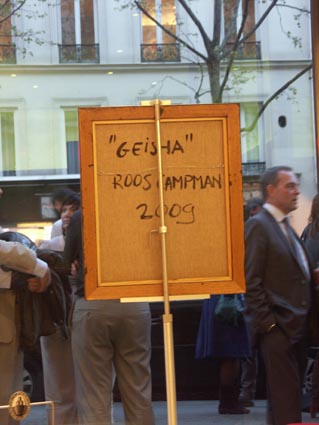 "GEiSHA"
ROOS CAMPMAN
2009